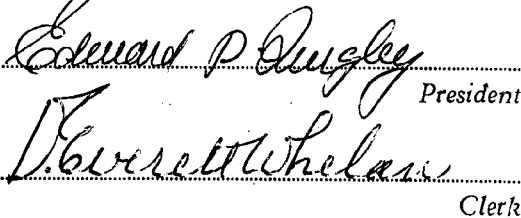 Edward P Quigley
President
D. Everett Whelan
Clerk